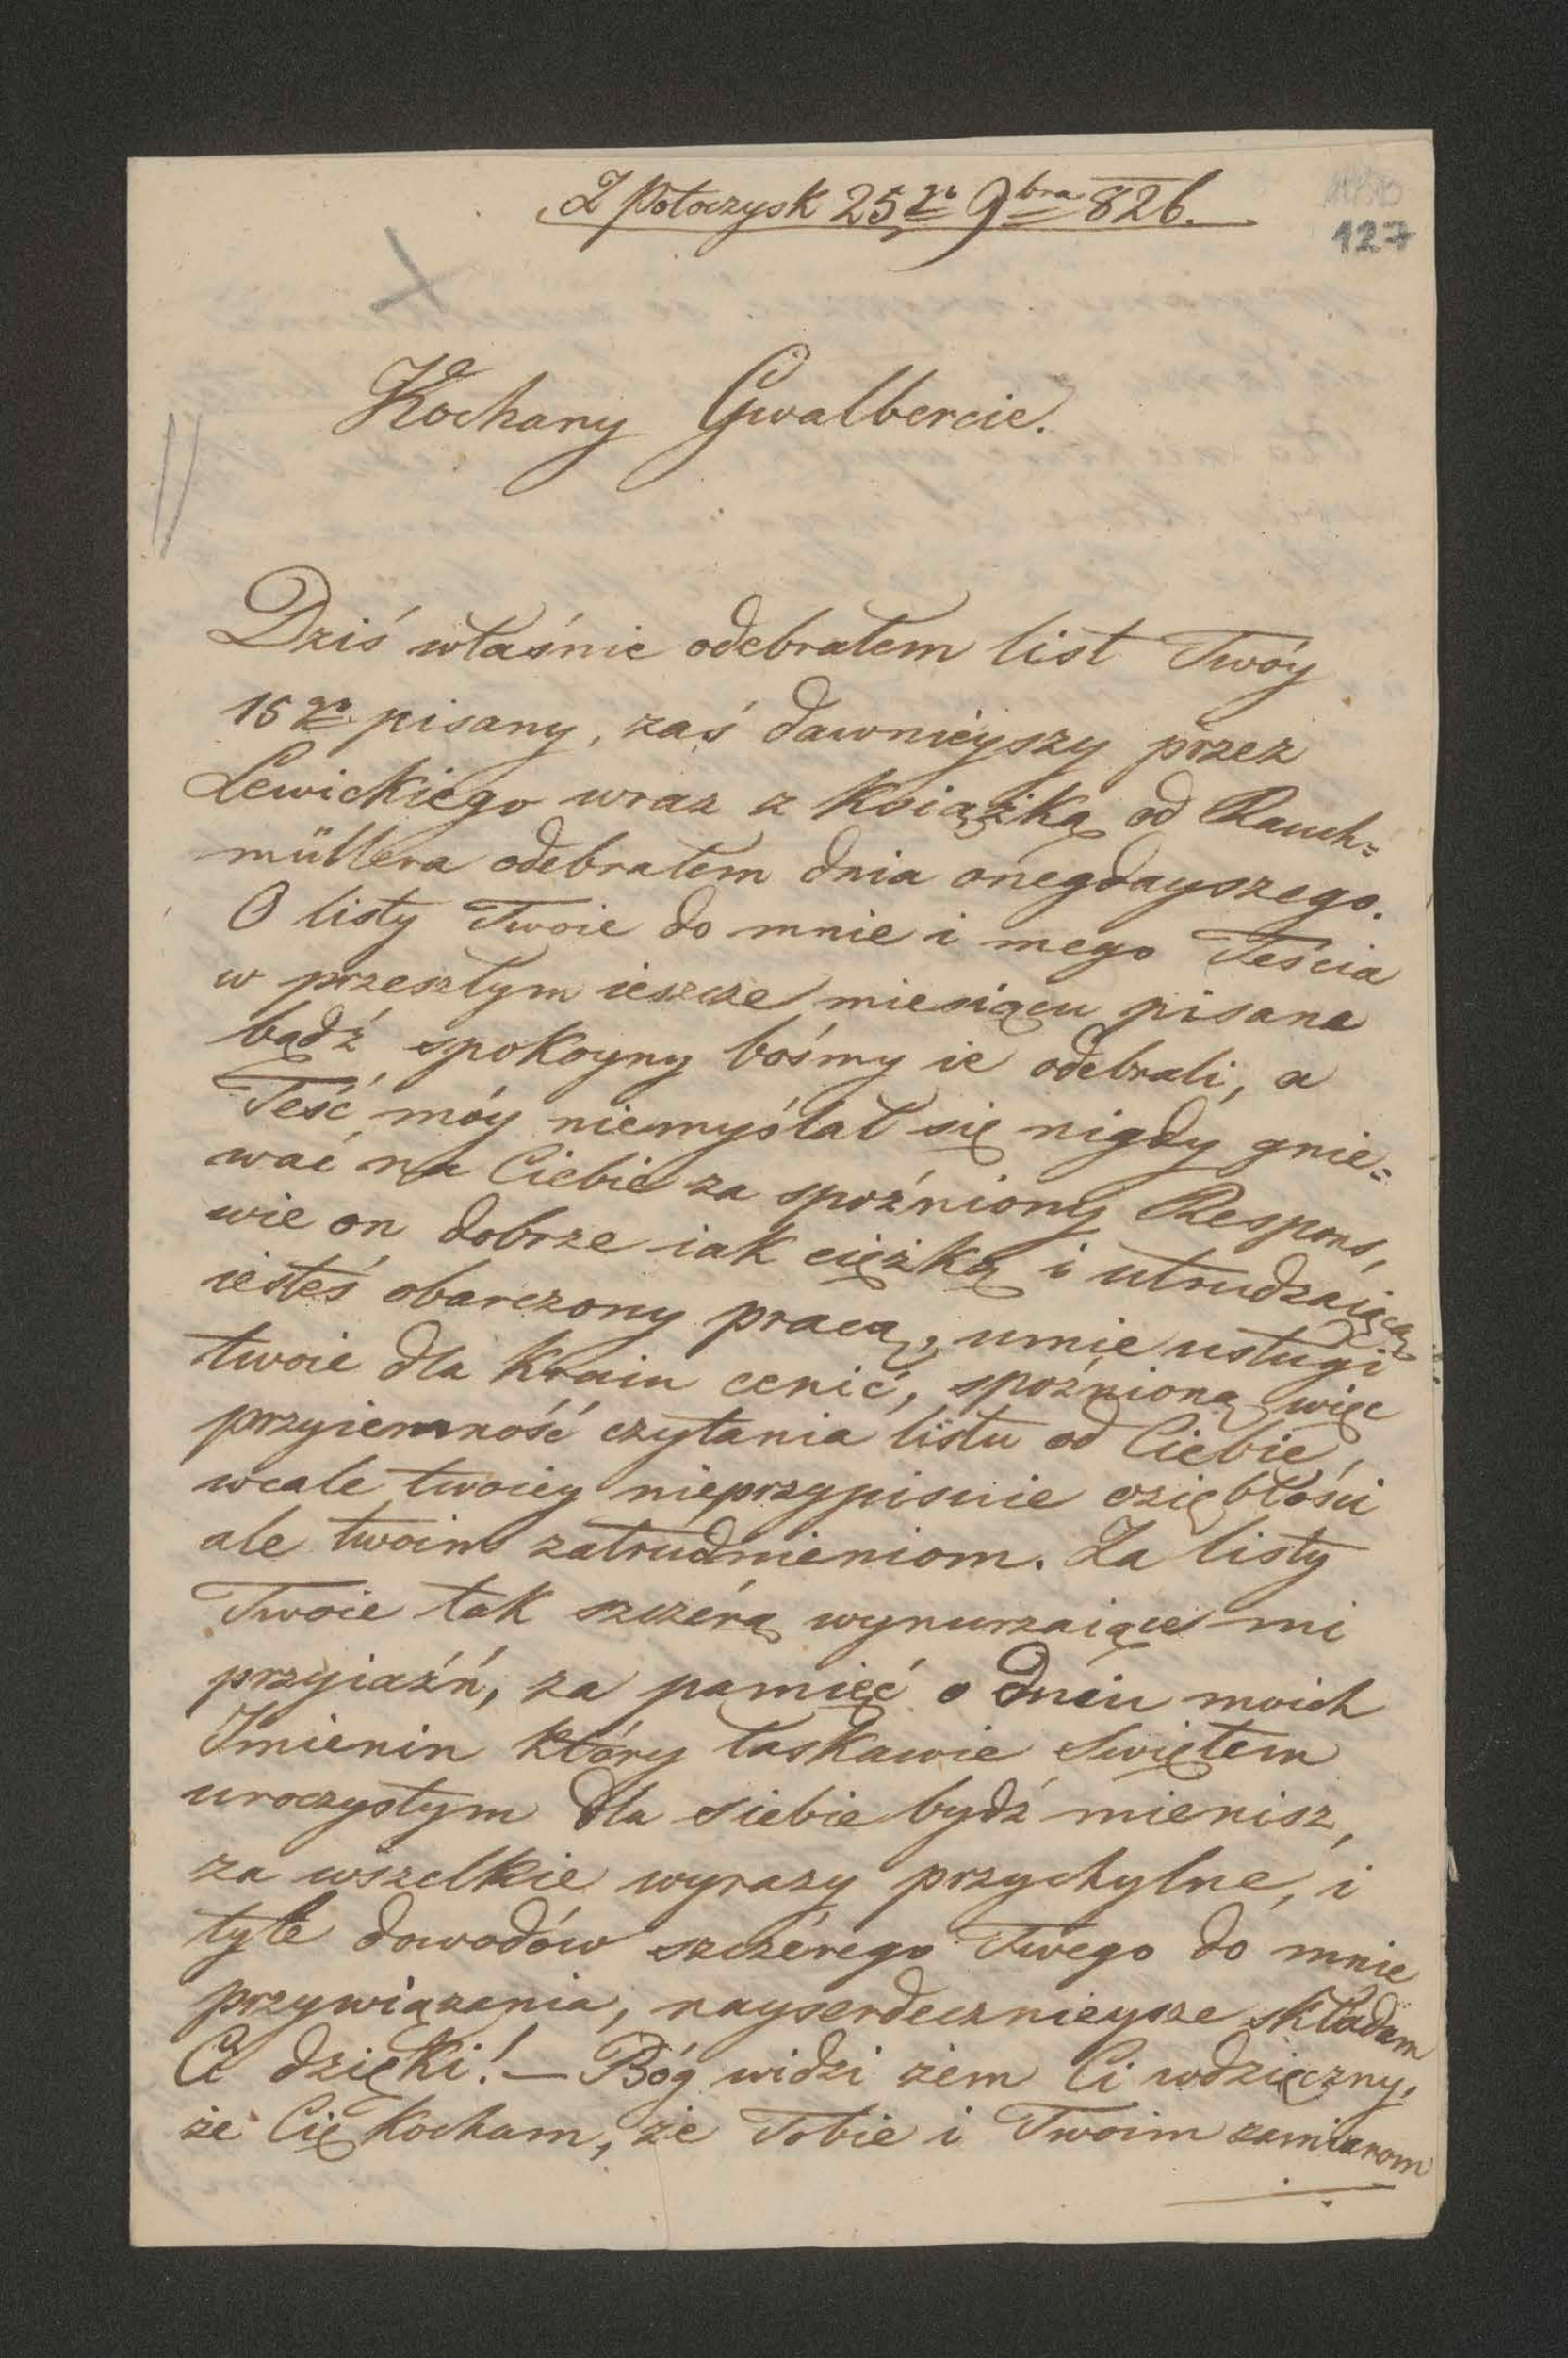 Z Potoczysk 25go 9bra 826.
127
Kochany Gwalbercie.
Dziś właśnie odebrałem list Twóy
15go pisany, zaś dawnieyszy przez
Lewickiego wraz z Książką od Rauch=
müllera odebrałem dnia onegdayszego.
O listy Twoie do mnie i mego Teścia
w przeszłym ieszcze miesiącu pisane
bądź spokoyny bośmy ie odebrali, a
Teść móy niemyślał się nigdy gnie=
wać na Ciebie za spoźniony Respons,
wie on dobrze iak ciężką i utrudzaiącą
iesteś obarczony pracą, umie usługi
twoie dla Kraiu cenić, spoźnioną więc
przyiemność czytania listu od Ciebie,
wcale twoiey nieprzypisuie oziębłości
ale twoim zatrudnieniom. Za listy
Twoie tak szczérą wynurzaiące mi
przyiaźń, za pamięć o dniu moich
Imienin który łaskawie Swiętem
uroczystym dla siebie bydź mienisz,
za wszelkie wyrazy przychylne, i
tyle dowodów szczérego Twego do mnie
przywiązania, nayserdecznieysze składam
Ci dzięki! — Bóg widzi żem Ci wdzięczny,
że Cię Kocham, że Tobie i Twoim zamiarom